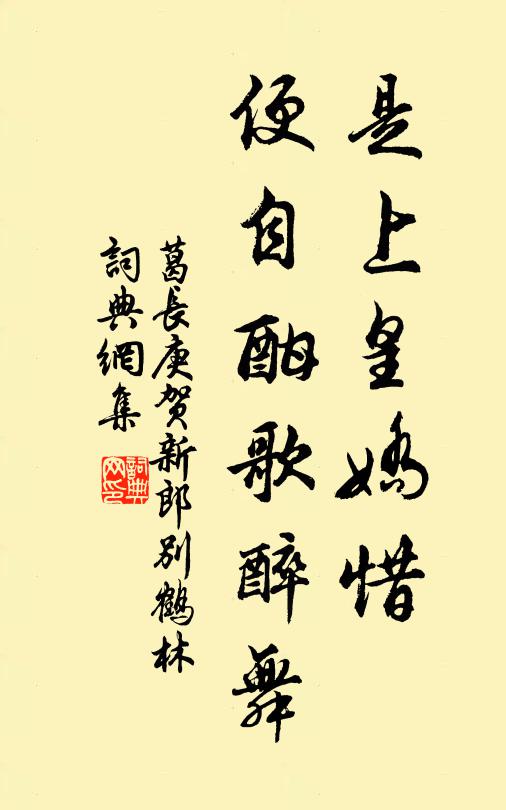 是上皇嬌惜
便自酣歌醉舞
葛長庚賀新郎別鶴林
詞典網集
詞典网印